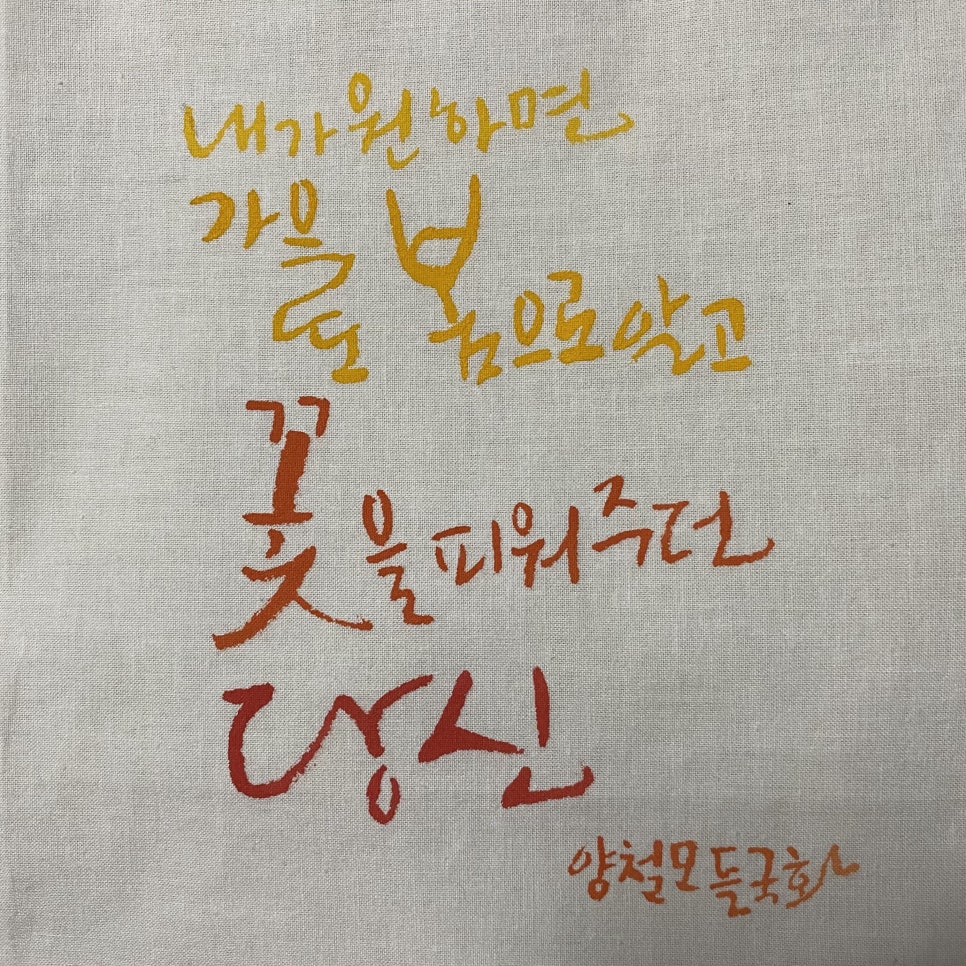 내가 원하면
가을도 봄으로 알고
꽃을 피워주던
당신
양철모 들국화